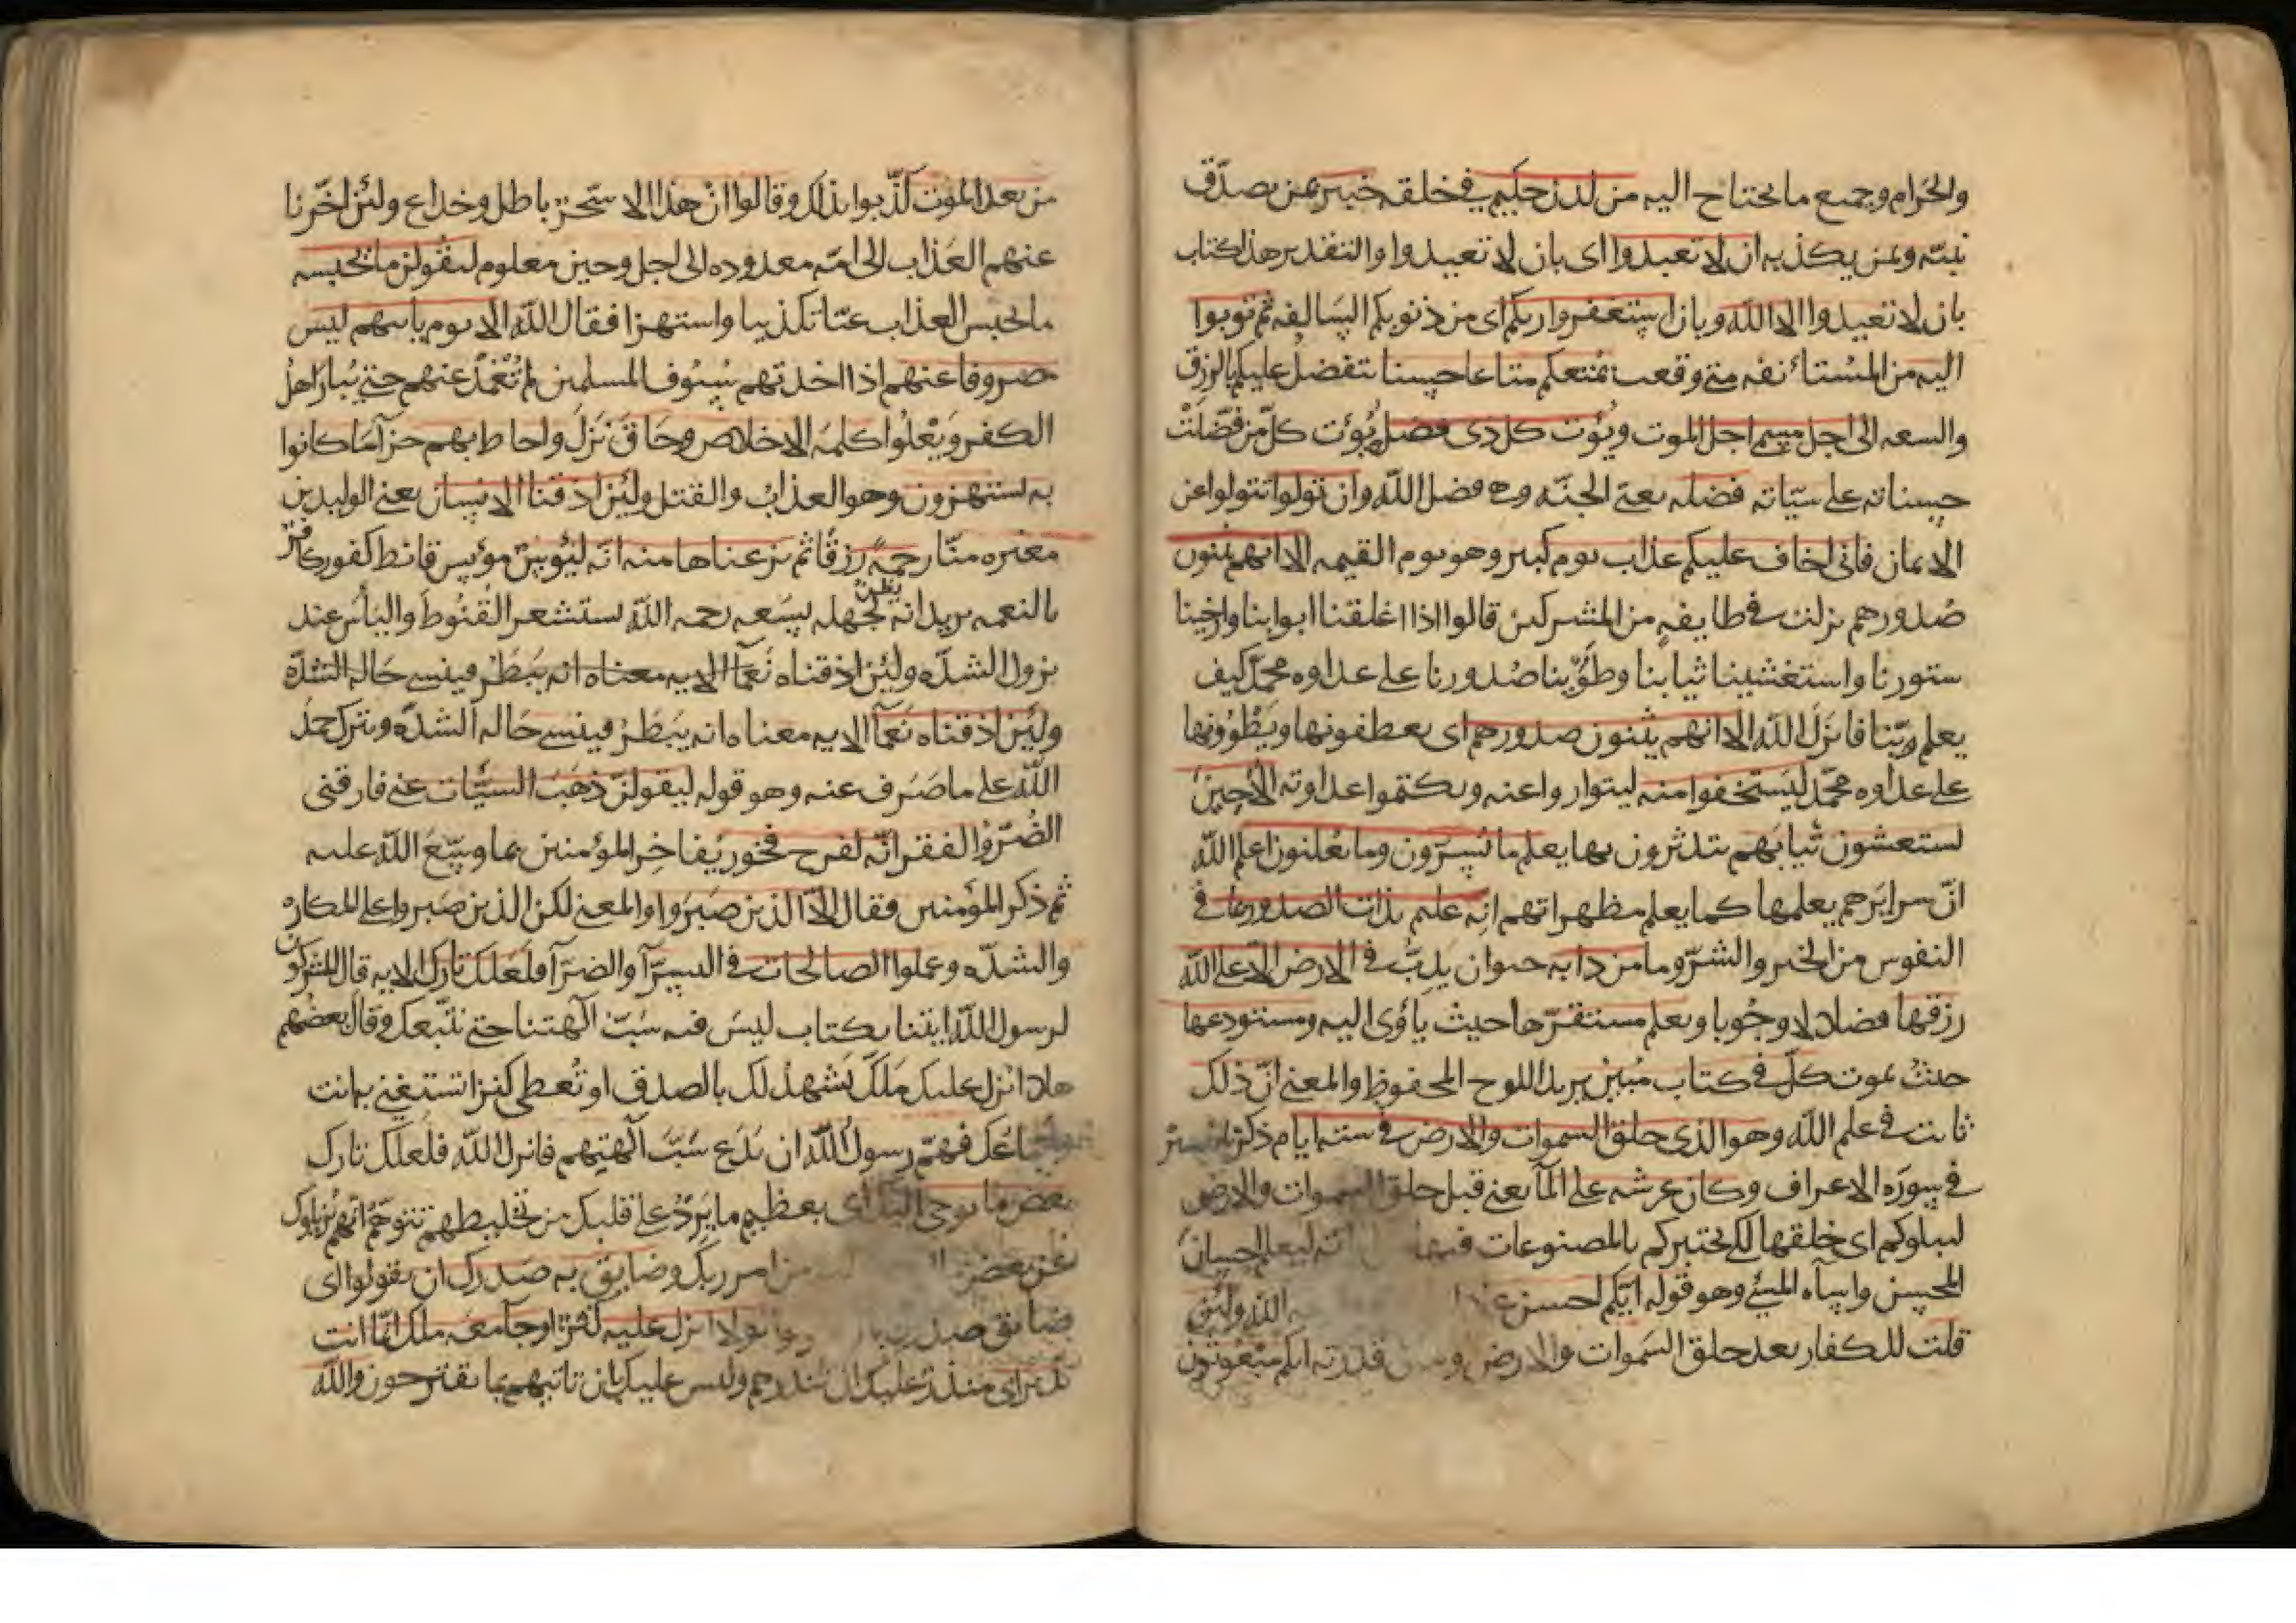 والحرام وجميع ما يحتاح اليه من لدن حكيم في خلقه خبير بمن يصدّق
نبيّه وبمن يكذبه ان لا تعبدوا اى بان لا تعبدوا والتقدير هذا كتاب
بان لا تعبدوا الا الله وبان استغفروا ربكم اى من ذنوبكم السالفه ثم توبوا
اليه من المستأنفه متى وقعت يمتعكم متاعا حسنا يتفضل عليكم بالرزق
والسعه الى اجل مسمى اجل الموت ويؤت كل ذى فضل يؤت كلّ من فضّلت
حسناته على سيّاته فضله يعنى الجنّه وهى فضل الله وان تولوا تتولوا عن
الايمان فانى اخاف عليكم عذاب يوم كبير وهو يوم القيمه الا انهم يثنون
صدورهم نزلت في طايفه من المشركين قالوا اذا اغلقنا ابوابنا وارخينا
ستورنا واستغشينا ثيابنا وطوينا صدورنا على عداوه محمد كيف
يعلم ربّنا فانزل الله الا انهم يثنون صدورهم اى يعطفونها ويطوونها
على عداوه محمّد ليستخفوا منه ليتواروا عنه ويكتموا عداوته الا حين
يستغشون ثيابهم يتدثرون بها يعلم ما يسرّون وما يعلنون اعلم الله
انّ سرايرهم يعلمها كما يعلم مظهراتهم انه عليم بذات الصدور بما في
النفوس من الخير والشرّ وما من دابه حيوان يدبّ في الارض الا على الله
رزقها فضلا لا وجوبا ويعلم مستقرّها حيث ياؤى اليه ومستودعها
حيث يموت كلّ في كتاب مبين يريد اللوح المحفوظ والمعنى انّ ذلك
ثابت في علم الله وهو الذى خلق السموات والارض في سته ايام ذكرنا
في سوره الاعراف وكان عرشه على المآ يعنى قبل خلق السموات والارض
ليبلوكم اى خلقها لكى يختبركم بالمصنوعات فيها اته ليعلم احسان
المحسن واسآه المسئ وهو قوله ايّكم احسن الله ولئن
قلت للكفار بعد خلق السموات والارض قدرته انكم مبعوثون
من بعد الموت كذّبوا بذلك وقالوا ان هذا الا سحر باطل وخداع ولئن اخّرنا
عنهم العذاب الى امّه معدوده الى اجل وحين معلوم ليقولن ما يحبسه
ما يحبس العذاب عنّا تكذيبا واستهزا فقال الله الا يوم ياتيهم ليس
مصروفا عنهم اذا اخذتهم سيوف المسلمين لم تغمد عنهم حتى يبار اهل
الكفر ويعلوا كلمه الاخلاص وحاق نزل واحاط بهم جزآ ما كانوا
به يستهزون وهو العذاب والقتل ولئن اذقنا الانسان يعنى الوليد بن
مغيره منّا رحمةً رزقًا ثم نزعناها منه انّه ليؤوس مؤيس قانط كفور كافر
بالنعمه يريد انه بجهله يظن بسعه رحمه الله يستشعر القنوط والياس عند
نزول الشدّه ولئن اذقناه نعمآ الايه معناه انه يبطر فينسى حاله الشدّه
ولئن اذقناه نعمآ الايه معناه انه يبطر فينسى حاله الشدّه ويترك حمد
الله على ما صرف عنه وهو قوله ليقولنّ ذهب السيّات عنى فارقنى
الضّرّ والفقر انّه لفرح فخور يفاخر المؤمنين بما وسّع الله عليه
ثم ذكر المؤمنين فقال الا الذين صبروا والمعنى لكن الذين صبروا على المكاره
والشدّه وعملوا الصالحات في السرّآ والضرّآ فلعلك تارك الايه قال المشركون
لرسول الله ايتنا بكتاب ليس فيه سبّ آلهتنا حتى نتّبعك وقال بعضهم
هلا انزل عليك ملك يشهد لك بالصدق او تعطى كنزا تستغنى به انت
فهمّ رسول الله ان يدع سبّ آلهتهم فانزل الله فلعلك تارك
بعض ما يوحى اليك اى بعظيم ما يرد على قلبك من تخليطهم تتوهم انهم يزيلونك
عن بعض من امر ربك وضايق به صدرك ان يقولوا اى
ضايق صدرك بان يقولوا لولا انزل عليه كنز او جآ معه ملك انّما انت
نذير اى منذر عليك ان تنذرهم وليس عليك ان تاتيهم بما يقترحون والله